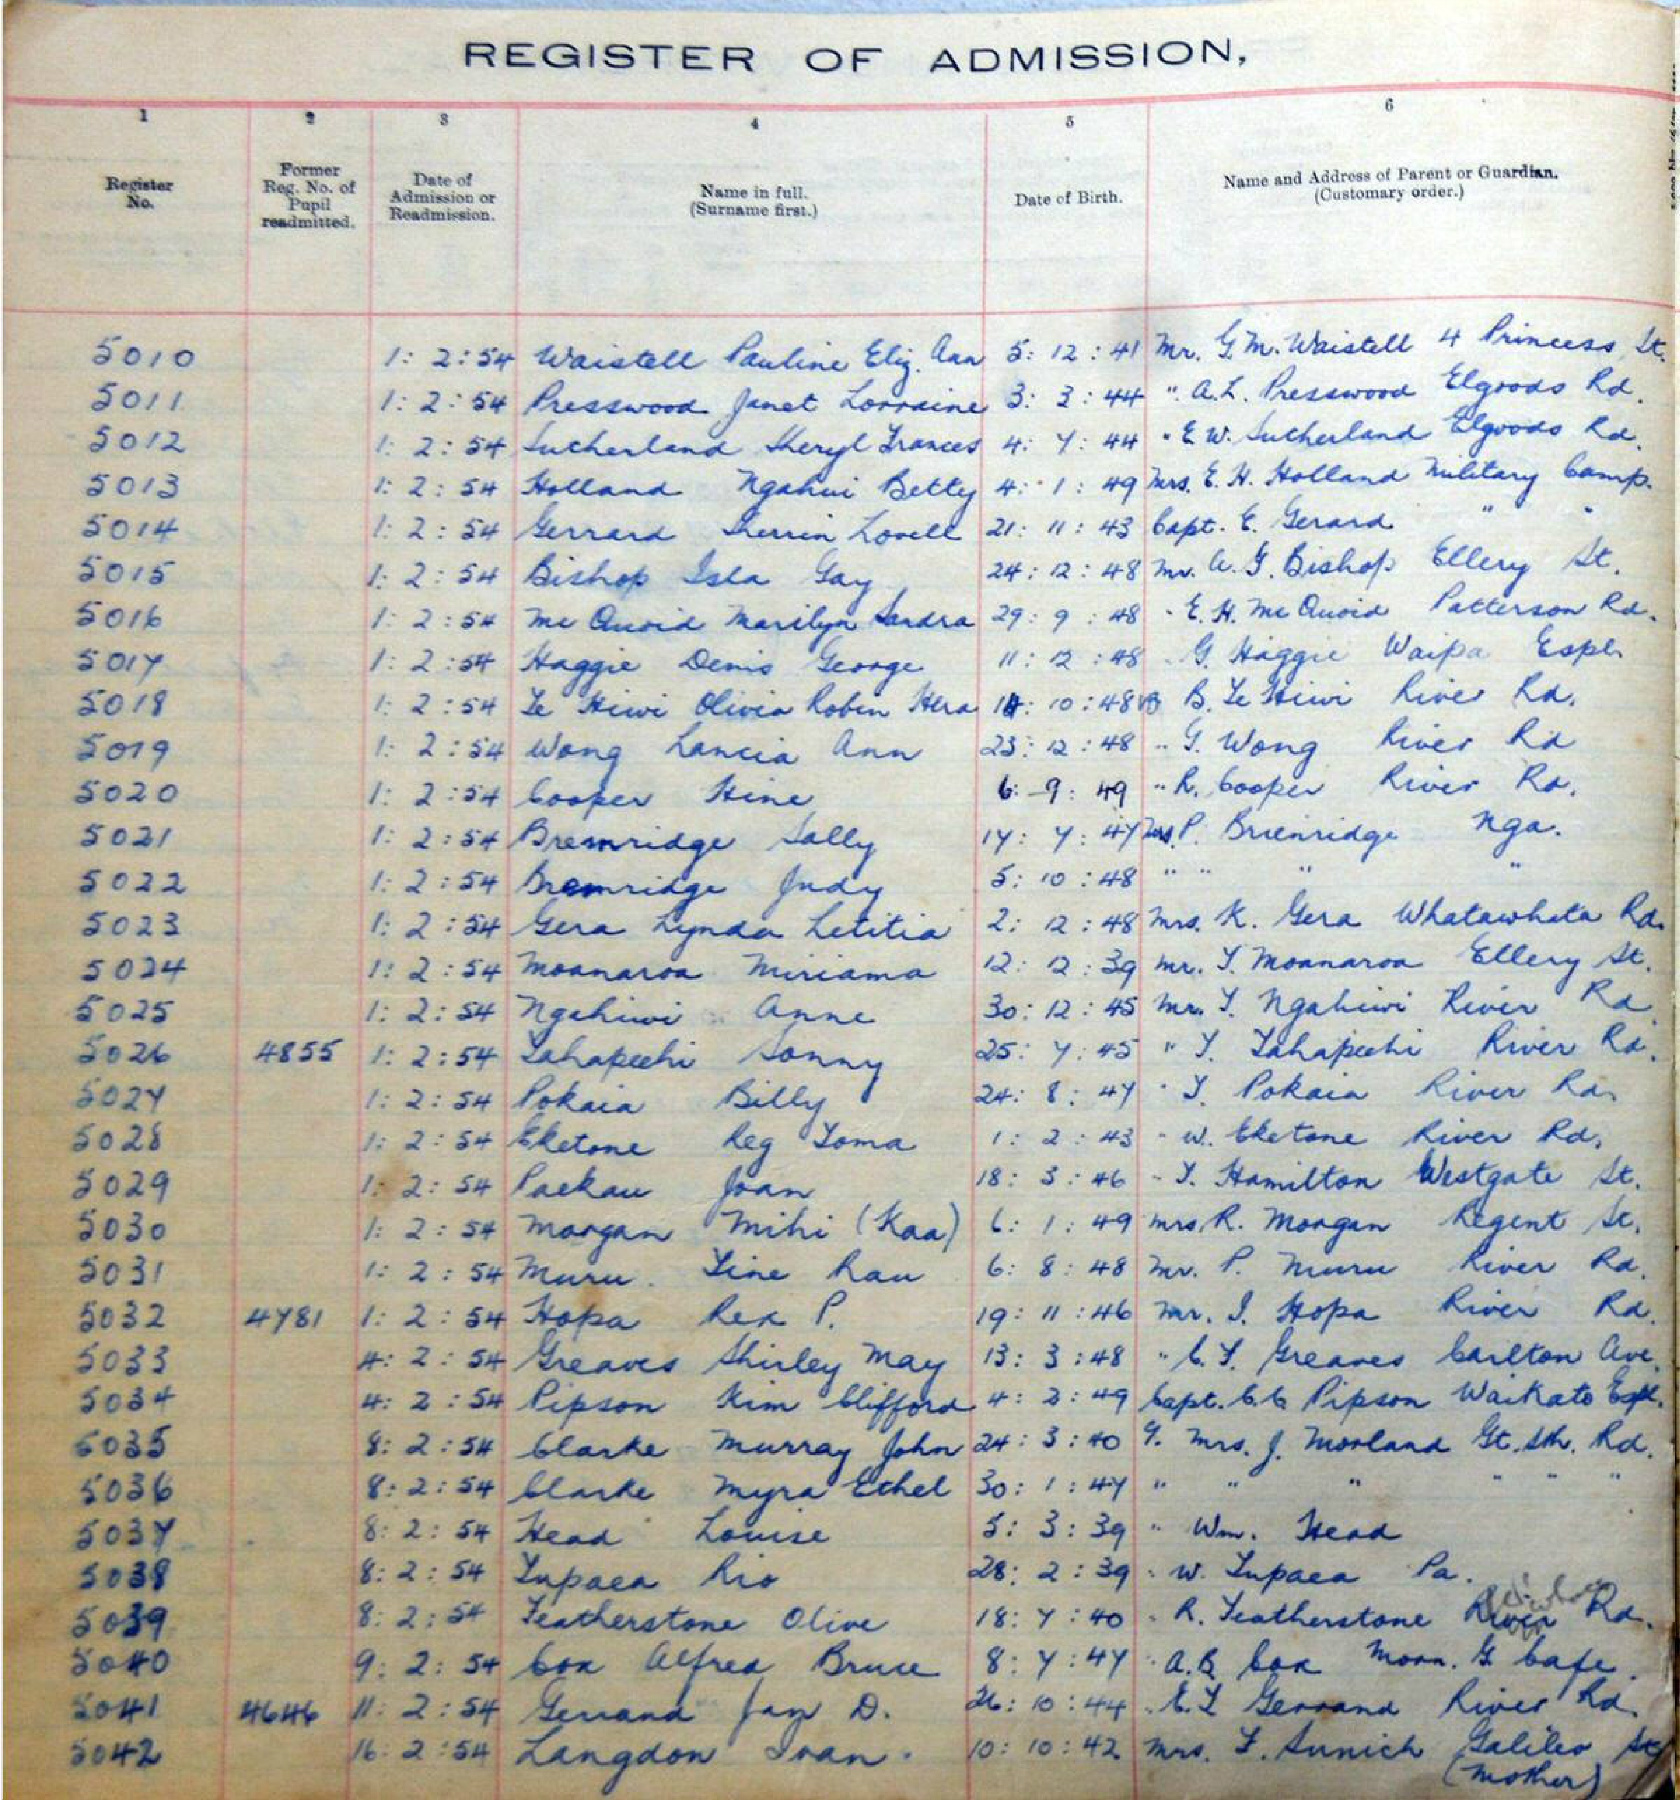 REGISTER OF ADMISSION,
1 2 3 4 5 6
Register No. Former Reg. No. of Pupil readmitted. Date of Admission or Readmission. Name in full. (Surname first.) Date of Birth. Name and Address of Parent or Guardian. (Customary order.)
5010 1: 2: 54 Waistell Pauline Eliz. Ann 5: 12: 41 Mr. G.M. Waistell 4 Princess St.
5011 1: 2: 54 Presswood Janet Lorraine 3: 3: 44 " A.L. Presswood Elgoods Rd.
5012 1: 2: 54 Sutherland Sheryl Frances 4: 7: 44 " E.W. Sutherland Elgoods Rd.
5013 1: 2: 54 Holland Ngahui Betty 4: 1: 49 Mrs. E. H. Holland Military Camp.
5014 1: 2: 54 Gerrard Sherrin Lovell 21: 11: 43 Capt. E. Gerard " "
5015 1: 2: 54 Bishop Isla Gay 24: 12: 48 Mr. A. G. Bishop Ellery St.
5016 1: 2: 54 Mc Quoid Marilyn Sandra 29: 9: 48 " E. H. Mc Quoid Patterson Rd.
5017 1: 2: 54 Haggie Denis George 11: 12: 48 " G. Haggie Waipa Espl.
5018 1: 2: 54 Te Hiwi Olivia Robin Hera 10: 48 B. Te Hiwi River Rd.
5019 1: 2: 54 Wong Lancia Ann 23: 12: 48 " G. Wong River Rd
5020 1: 2: 54 Cooper Hine 6: 9: 49 " R. Cooper River Rd.
5021 1: 2: 54 Bremridge Sally 17: 7: 47 Mrs. P. Briemridge Nga.
5022 1: 2: 54 Bremridge Judy 5: 10: 48 " " " "
5023 1: 2: 54 Gera Lynda Letitia 2: 12: 48 Mrs. K. Gera Whatawhata Rd.
5024 1: 2: 54 Moanaroa Miriama 12: 12: 39 Mr. T. Moanaroa Ellery St.
5025 1: 2: 54 Ngahiwi Anne 30: 12: 45 Mr. T. Ngahiwi River Rd
5026 4855 1: 2: 54 Tahapeehi Sonny 25: 7: 45 " T. Tahapeehi River Rd.
5027 1: 2: 54 Pokaia Billy 24: 8: 47 " T. Pokaia River Rd.
5028 1: 2: 54 Eketone Reg Toma 1: 2: 43 " W. Eketone River Rd.
5029 1: 2: 54 Paekau Joan 18: 3: 46 " T. Hamilton Westgate St.
5030 1: 2: 54 Morgan Mihi (Kaa) 6: 1: 49 Mrs. R. Morgan Regent St.
5031 1: 2: 54 Muru Tine Rau 6: 8: 48 Mr. P. Muru River Rd.
5032 4781 1: 2: 54 Hopa Rex P. 19: 11: 46 Mr. I. Hopa River Rd.
5033 4: 2: 54 Greaves Shirley May 13: 3: 48 " C. T. Greaves Carlton Ave.
5034 4: 2: 54 Pipson Kim Clifford 4: 2: 49 Capt. C. C. Pipson Waikato Espl.
5035 8: 2: 54 Clarke Murray John 24: 3: 40 G. Mrs. J. Morland Gt. Sth. Rd.
5036 8: 2: 54 Clarke Myra Ethel 30: 1: 47 " " " " " "
5037 8: 2: 54 Head Louise 5: 3: 39 " Wm. Head
5038 8: 2: 54 Tupaea Rio 28: 2: 39 " W. Tupaea Pa.
5039 8: 2: 54 Featherstone Olive 18: 7: 40 " R. Featherstone River Rd.
5040 9: 2: 54 Cox Alfred Bruce 8: 7: 47 " A.B. Cox Morn. G. Cafe.
5041 4646 11: 2: 54 Gerrand Jay D. 26: 10: 44 " E. L Gerrand River Rd.
5042 16: 2: 54 Langdon Ivan. 10: 10: 42 Mrs. F. Sunich Galileo St
(mother)